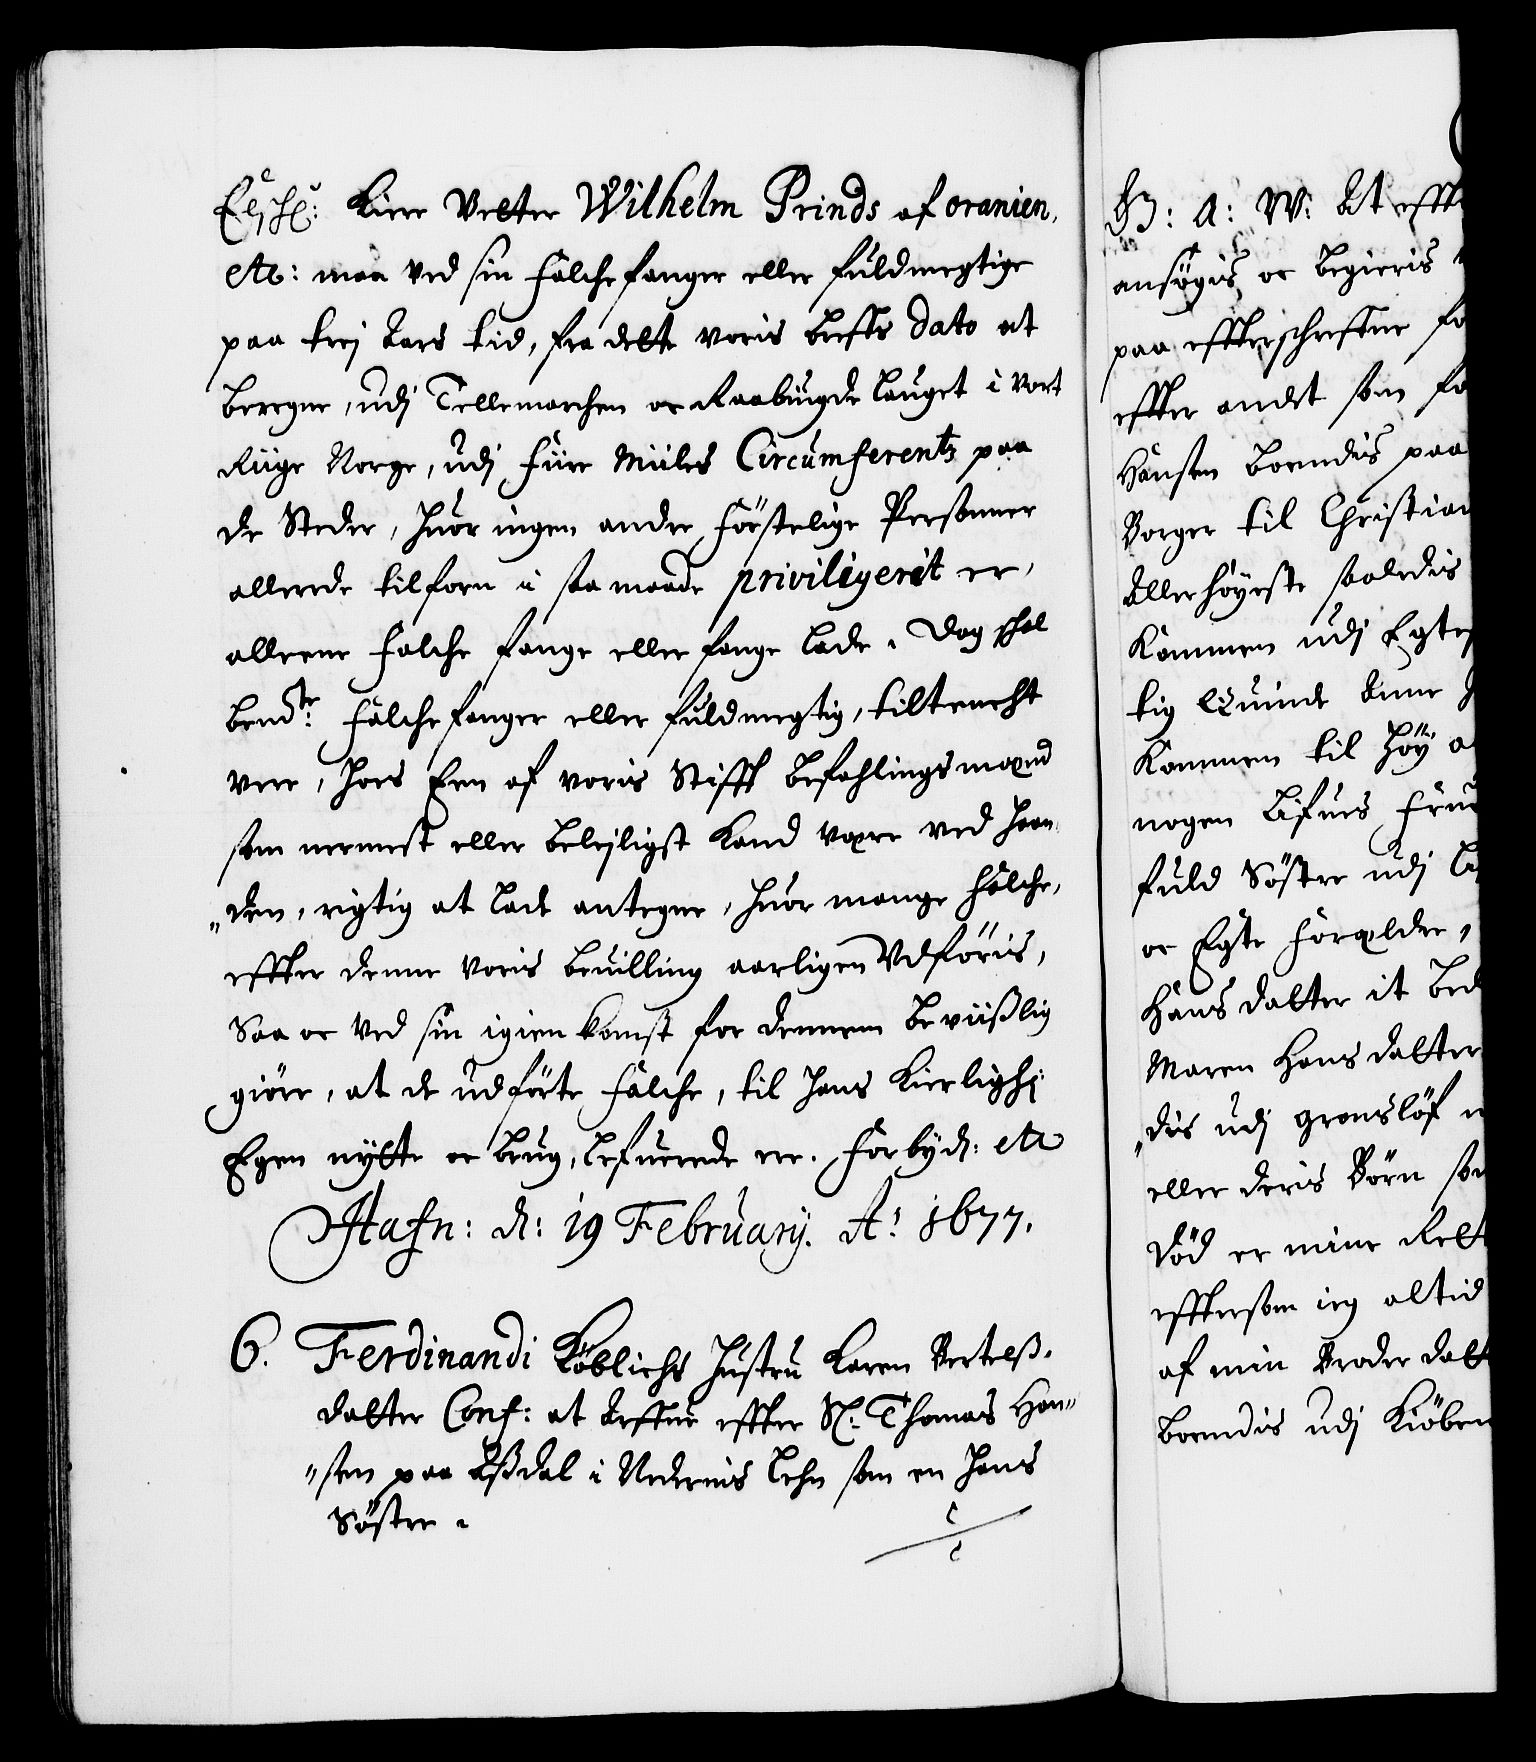 Elschel: Kiere Vetter Wilhelm Prinds af oranien,
etc: maa ved sin Falchefanger eller fuldmegtige
paa trej Aars tid, fra dette voris brefs dato at
beregne, udj Tellemarchen oc Raabiugdelauget i vort
Riige Norge, udj fiire Miiles Circumferentz paa
de Steder, huor ingen andre Förstelige Personner
allerede tilforn i saa maade priviligerit er,
alleene Falche fange eller fange lade. Dog schal
bemte: Falchefanger eller fuldmegtig, tiltencht
vere, hos Een af voris Stifft befahlingsmænd
som nermest eller belejligst kand være ved haan„
„den, rigtig at lade antegne, huor mange Falche,
effter denne voris bevilling aarligen Udföris,
Saa oc Ved sin igienkomst for dennem beviislig
giöre, at de udförte Falche, til hans Kierlighj:
Egen nytte oc brug, lefuerede ere. Forbyd: etc
Hafn: d: 19 February. Ao 1677.
6. Ferdinandi Köblichs hustru Karen Bertelß„
datter Conf: at Arffue effter Sl: Thomas Han„
„sen paa Aßdal i Nedenis Lehn som en hans
Söstre.
G: A: W: At efft
ansögis oc begieris
paa effterschreffne fo
effter andet som fo
Hansen boendis paa
Borger til Christian
Allerhöyeste saaledis
Kommen udj Egte
tig Quinde Anne
Kommen til Höy a
nogen Lifues Fru
fuld Söstre udj
oc Egte Forældre,
Hans datter it
Maren Hans datter
„dis udj gronslöf
eller deris Börn som
död er mine Rett
efftersom ieg altid
af min Broder datt
boendis udj Kiöben